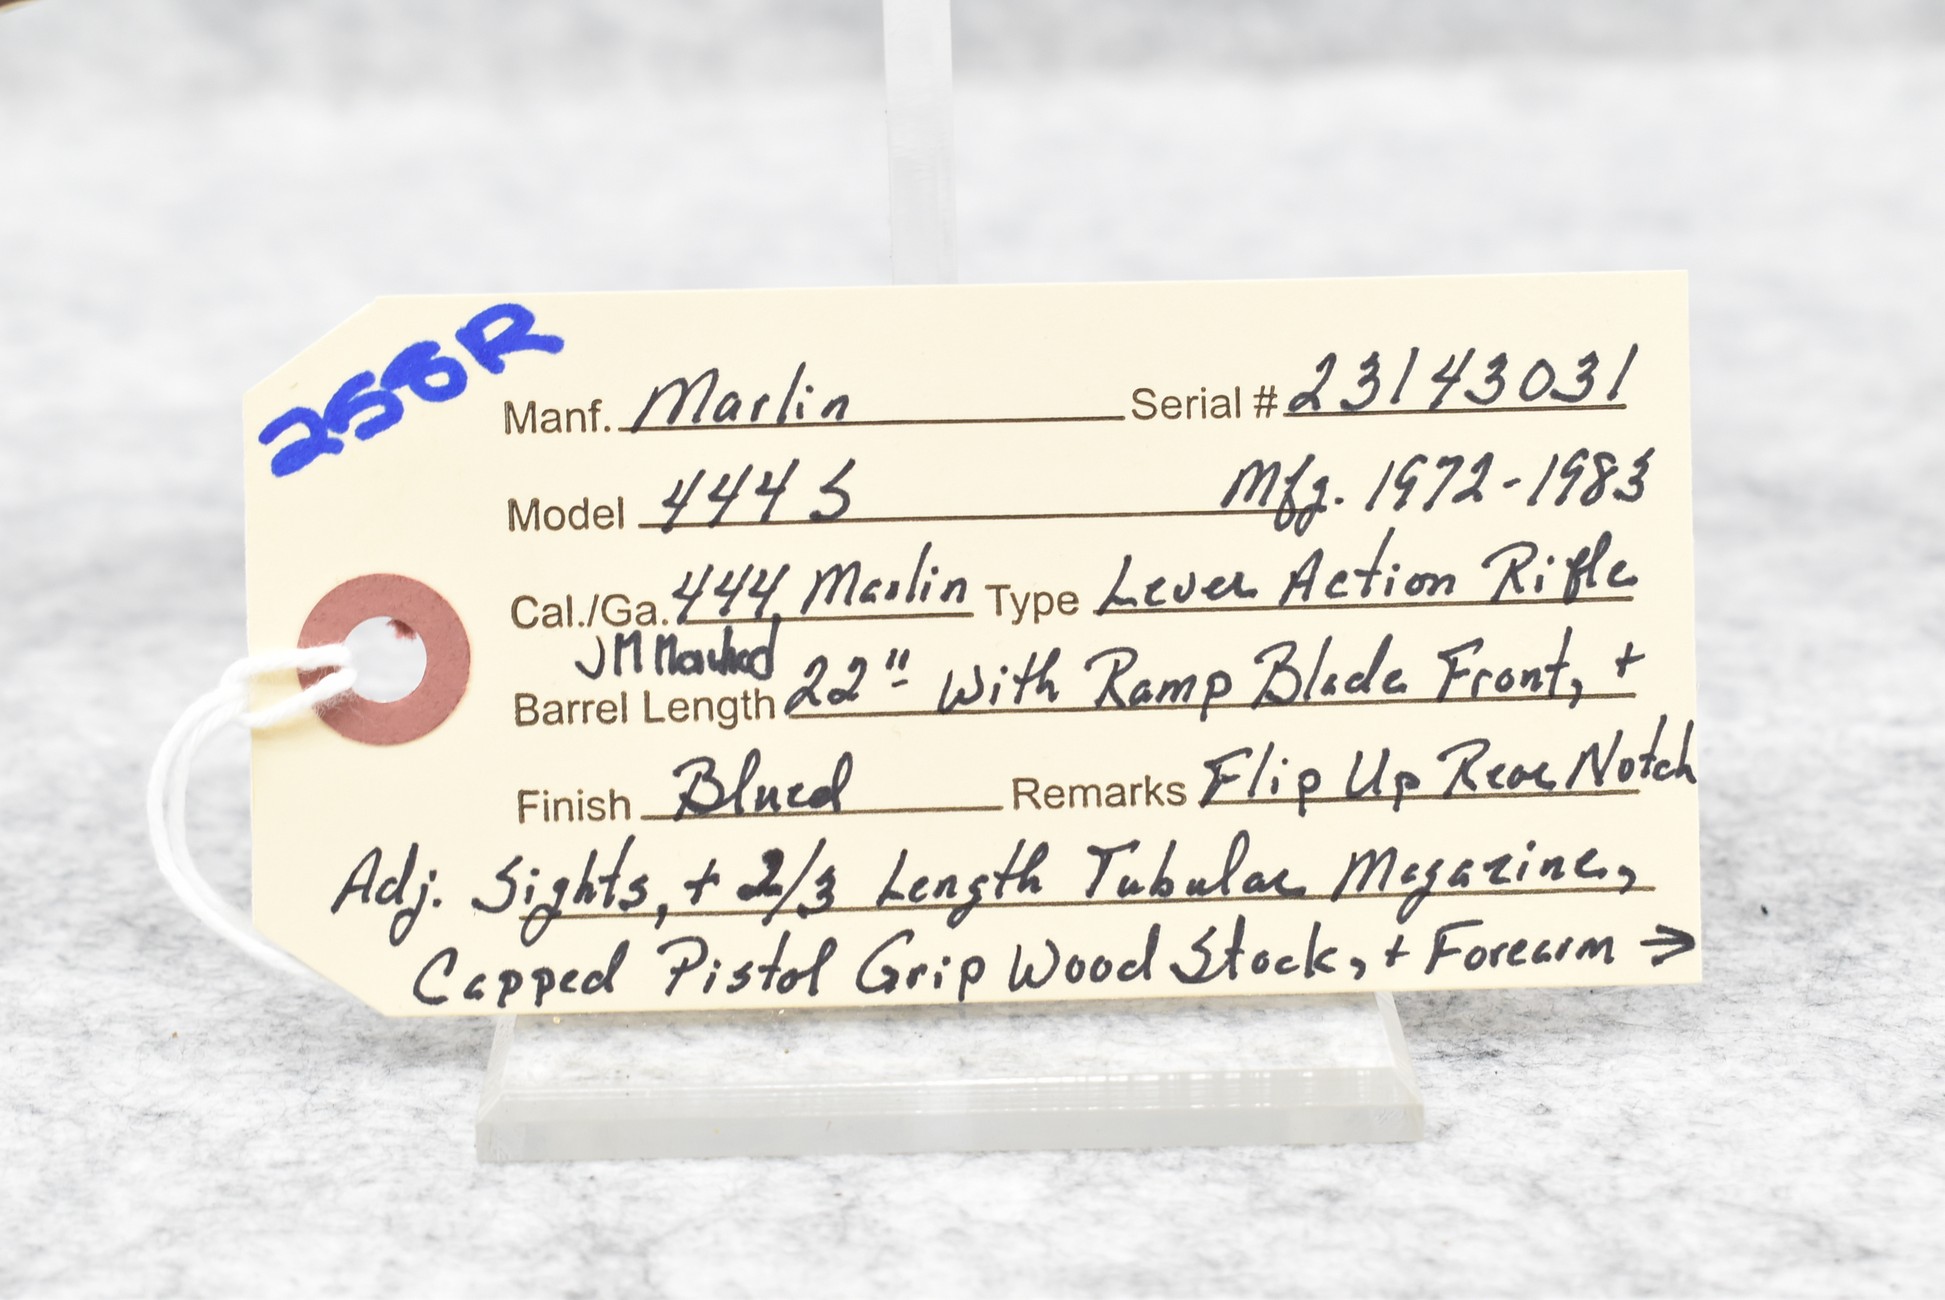 258R
Manf. Marlin Serial # 23143031
Model 444 S Mfg. 1972-1983
Cal./Ga. 444 Marlin Type Lever Action Rifle
JM Marked
Barrel Length 22" With Ramp Blade Front, +
Finish Blued Remarks Flip Up Rear Notch
Adj. Sights, + 2/3 Length Tubular Magazine,
Capped Pistol Grip Wood Stock, + Forearm →